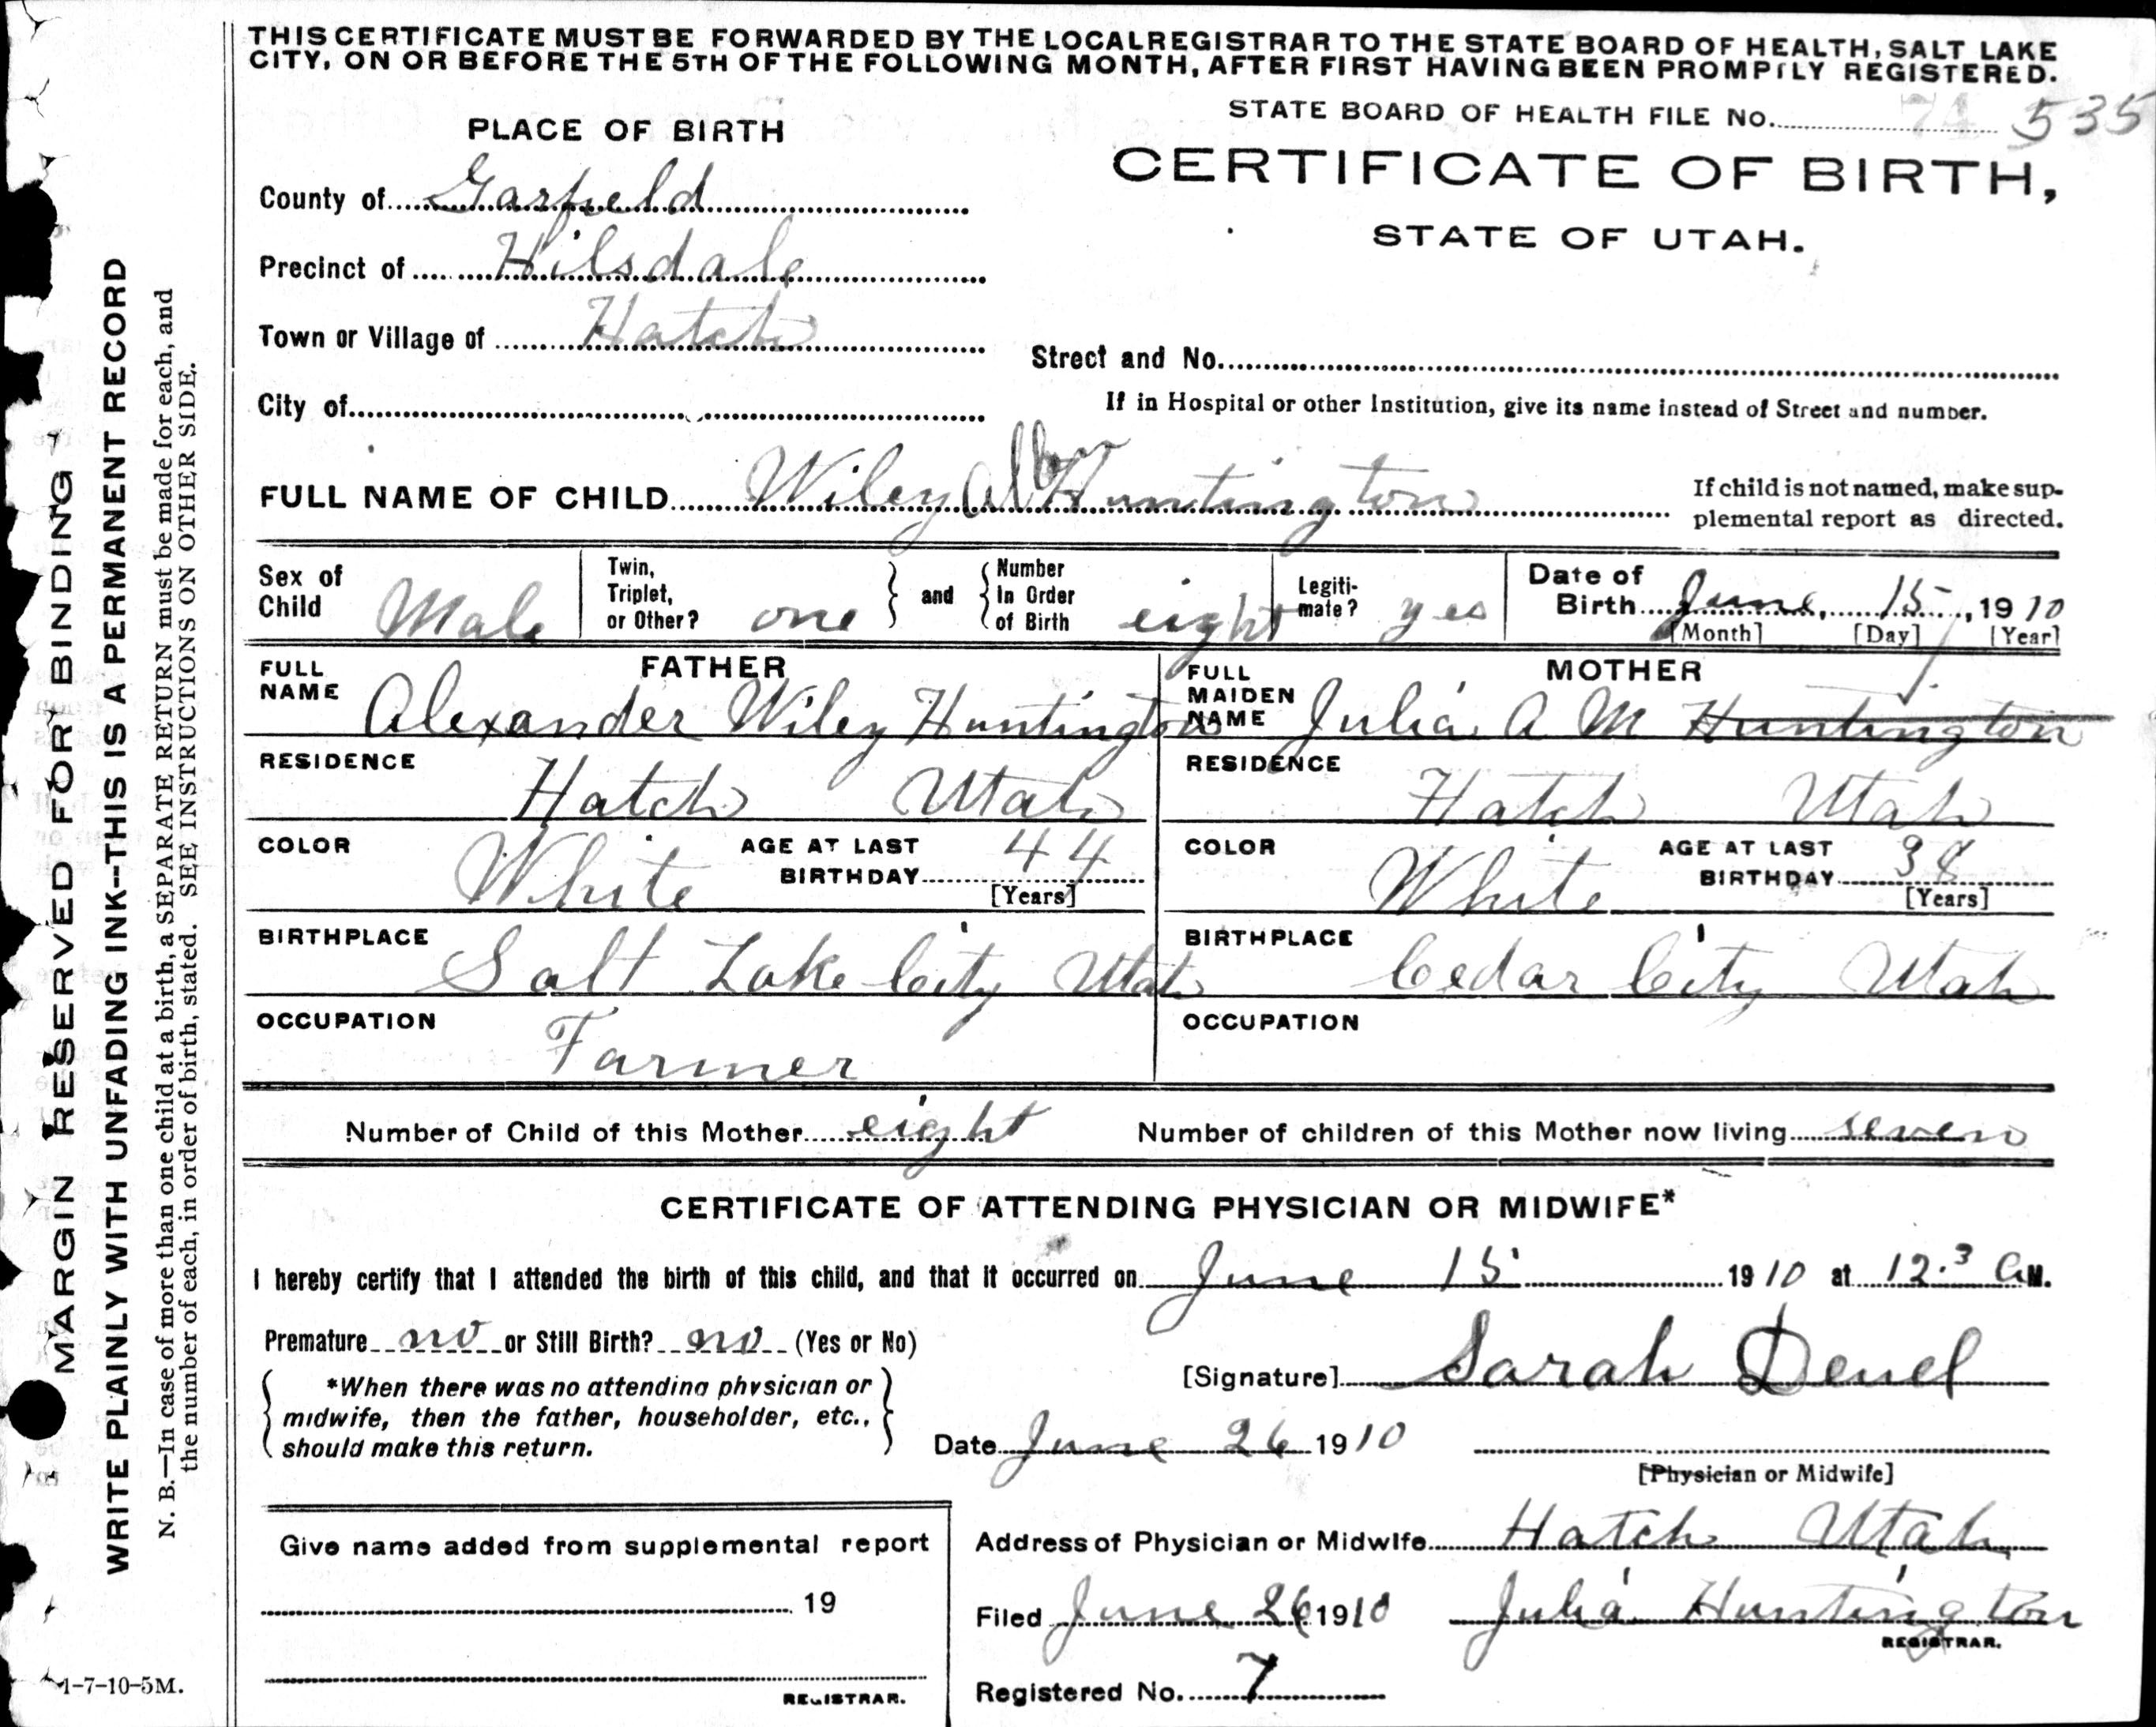 THIS CERTIFICATE MUST BE FORWARDED BY THE LOCAL REGISTRAR TO THE STATE BOARD OF HEALTH, SALT LAKE
CITY, ON OR BEFORE THE 5TH OF THE FOLLOWING MONTH, AFTER FIRST HAVING BEEN PROMPTLY REGISTERED.
STATE BOARD OF HEALTH FILE No. 74 535
PLACE OF BIRTH
CERTIFICATE OF BIRTH,
STATE OF UTAH.
County of Garfield
Precinct of Hilsdale
Town or Village of Hatch
Street and No.
City of
If in Hospital or other Institution, give its name instead of Street and number.
FULL NAME OF CHILD Wiley Huntington
If child is not named, make sup-
plemental report as directed.
Sex of Child Male
Twin, Triplet, or Other? one
and
Number In Order of Birth eight
Legiti-mate? yes
Date of Birth June 15, 1910
[Month] [Day] [Year]
FATHER
FULL NAME Alexander Wiley Huntington
MOTHER
FULL MAIDEN NAME Julia A M Huntington
RESIDENCE Hatch Utah
RESIDENCE Hatch Utah
COLOR White AGE AT LAST BIRTHDAY 44 [Years]
COLOR White AGE AT LAST BIRTHDAY 38 [Years]
BIRTHPLACE Salt Lake City Utah
BIRTHPLACE Cedar City Utah
OCCUPATION Farmer
OCCUPATION
Number of Child of this Mother eight Number of children of this Mother now living seven
CERTIFICATE OF ATTENDING PHYSICIAN OR MIDWIFE*
I hereby certify that I attended the birth of this child, and that it occurred on June 15 1910 at 12.3 A M.
Premature no or Still Birth? no (Yes or No)
[Signature] Sarah Deuel
*When there was no attending physician or
midwife, then the father, householder, etc.,
should make this return.
Date June 26 1910
[Physician or Midwife]
Give name added from supplemental report
19
REGISTRAR.
Address of Physician or Midwife Hatch Utah
Filed June 26 1910 Julia Huntington
REGISTRAR.
Registered No. 7
MARGIN RESERVED FOR BINDING
WRITE PLAINLY WITH UNFADING INK--THIS IS A PERMANENT RECORD
N. B.—In case of more than one child at a birth, a SEPARATE RETURN must be made for each, and
the number of each, in order of birth, stated. SEE INSTRUCTIONS ON OTHER SIDE.
1-7-10-5M.